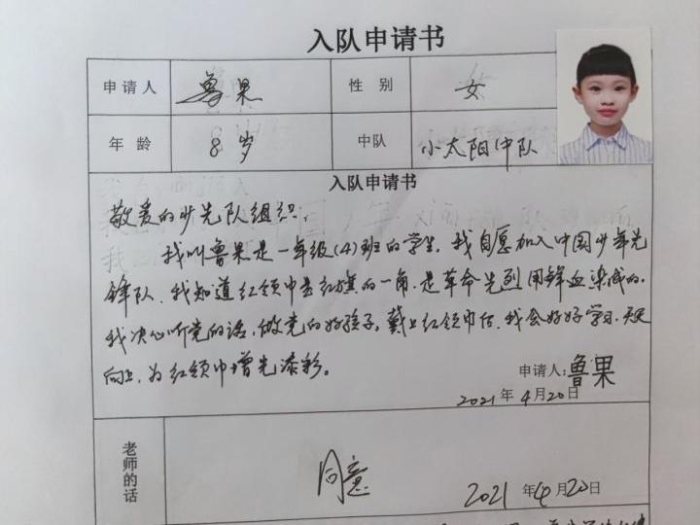 入队申请书
申请人 鲁果 性别 女
年龄 8岁 中队 小太阳中队
入队申请书
敬爱的少先队组织:
我叫鲁果是一年级(4)班的学生,我自愿加入中国少年先
锋队,我知道红领巾是红旗的一角,是革命先烈用鲜血染成的.
我决心听党的话,做党的好孩子,戴上红领巾后,我会好好学习,天天
向上,为红领巾增光添彩。
申请人:鲁果
2021年4月20日
老师的话 同意 2021年4月20日